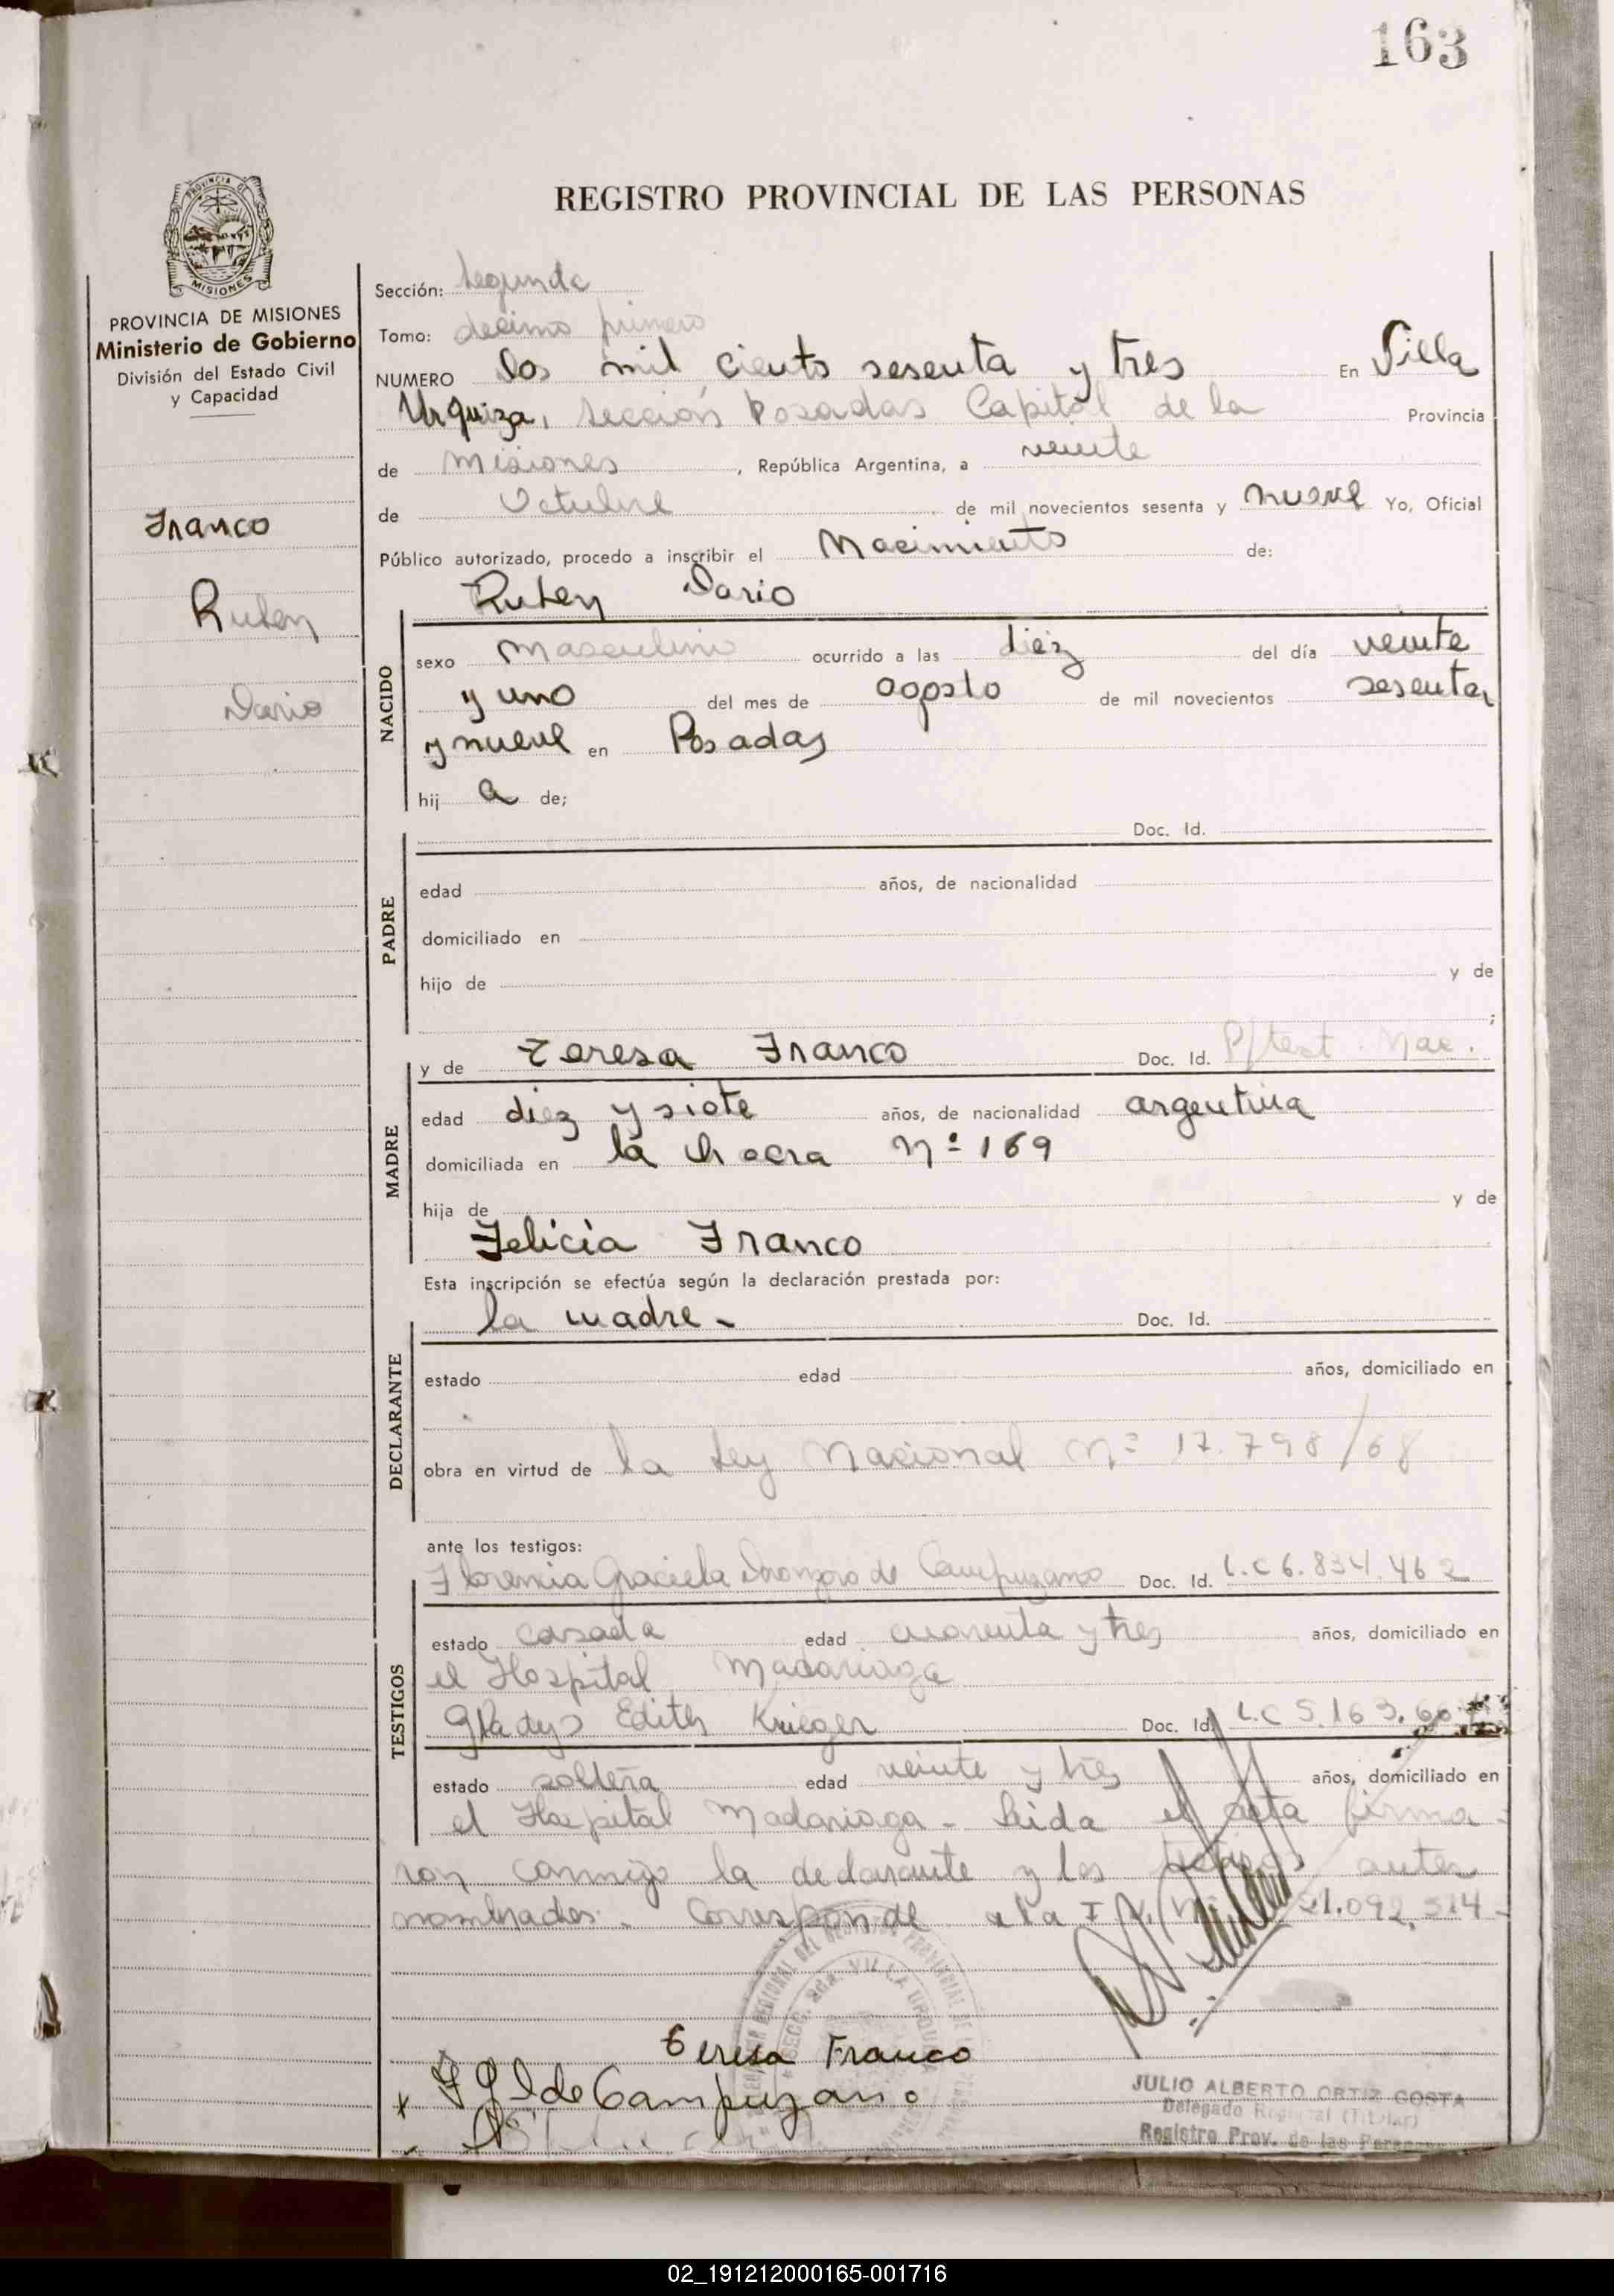 163
REGISTRO PROVINCIAL DE LAS PERSONAS
PROVINCIA DE MISIONES
PROVINCIA DE MISIONES
Ministerio de Gobierno
División del Estado Civil
y Capacidad
Franco
Ruben
Dario
Sección: Segunda
Tomo: decimo primero
NUMERO Dos mil ciento sesenta y tres En Villa
Urquiza, sección Posadas Capital de la Provincia
de Misiones, República Argentina, a veinte
de Octubre de mil novecientos sesenta y nueve Yo, Oficial
Público autorizado, procedo a inscribir el Nacimiento de:
Ruben Dario
NACIDO
sexo Masculino ocurrido a las diez del día veinte
y uno del mes de agosto de mil novecientos sesenta
y nueve en Posadas
hij a de;
Doc. Id.
PADRE
edad años, de nacionalidad
domiciliado en
hijo de y de
;
y de Teresa Franco Doc. Id. P/test. Nac.
MADRE
edad diez y siete años, de nacionalidad argentina
domiciliada en la chacra Nº 169
hija de y de
Felicia Franco
Esta inscripción se efectúa según la declaración prestada por:
la madre - Doc. Id.
DECLARANTE
estado edad años, domiciliado en
obra en virtud de la Ley Nacional Nº 17.798/68
ante los testigos:
Florencia Graciela de Campuzano Doc. Id. L.C 6.834.462
TESTIGOS
estado casada edad cuarenta y tres años, domiciliado en
el Hospital Madariaga
Gladys Edith Krieger Doc. Id. L.C 5.163.60
estado soltera edad veinte y tres años, domiciliado en
el Hospital Madariaga - Leida el acta firma-
ron conmigo la declarante y los testigos antes
nombrados. Corresponde a la 21.092.314-
SECC. 2da. VILLA URQUIZA
Teresa Franco
x F G I de Campuzano
JULIO ALBERTO ORTIZ COSTA
Delegado Regional (Titular)
Registro Prov. de las Personas
02_191212000165-001716